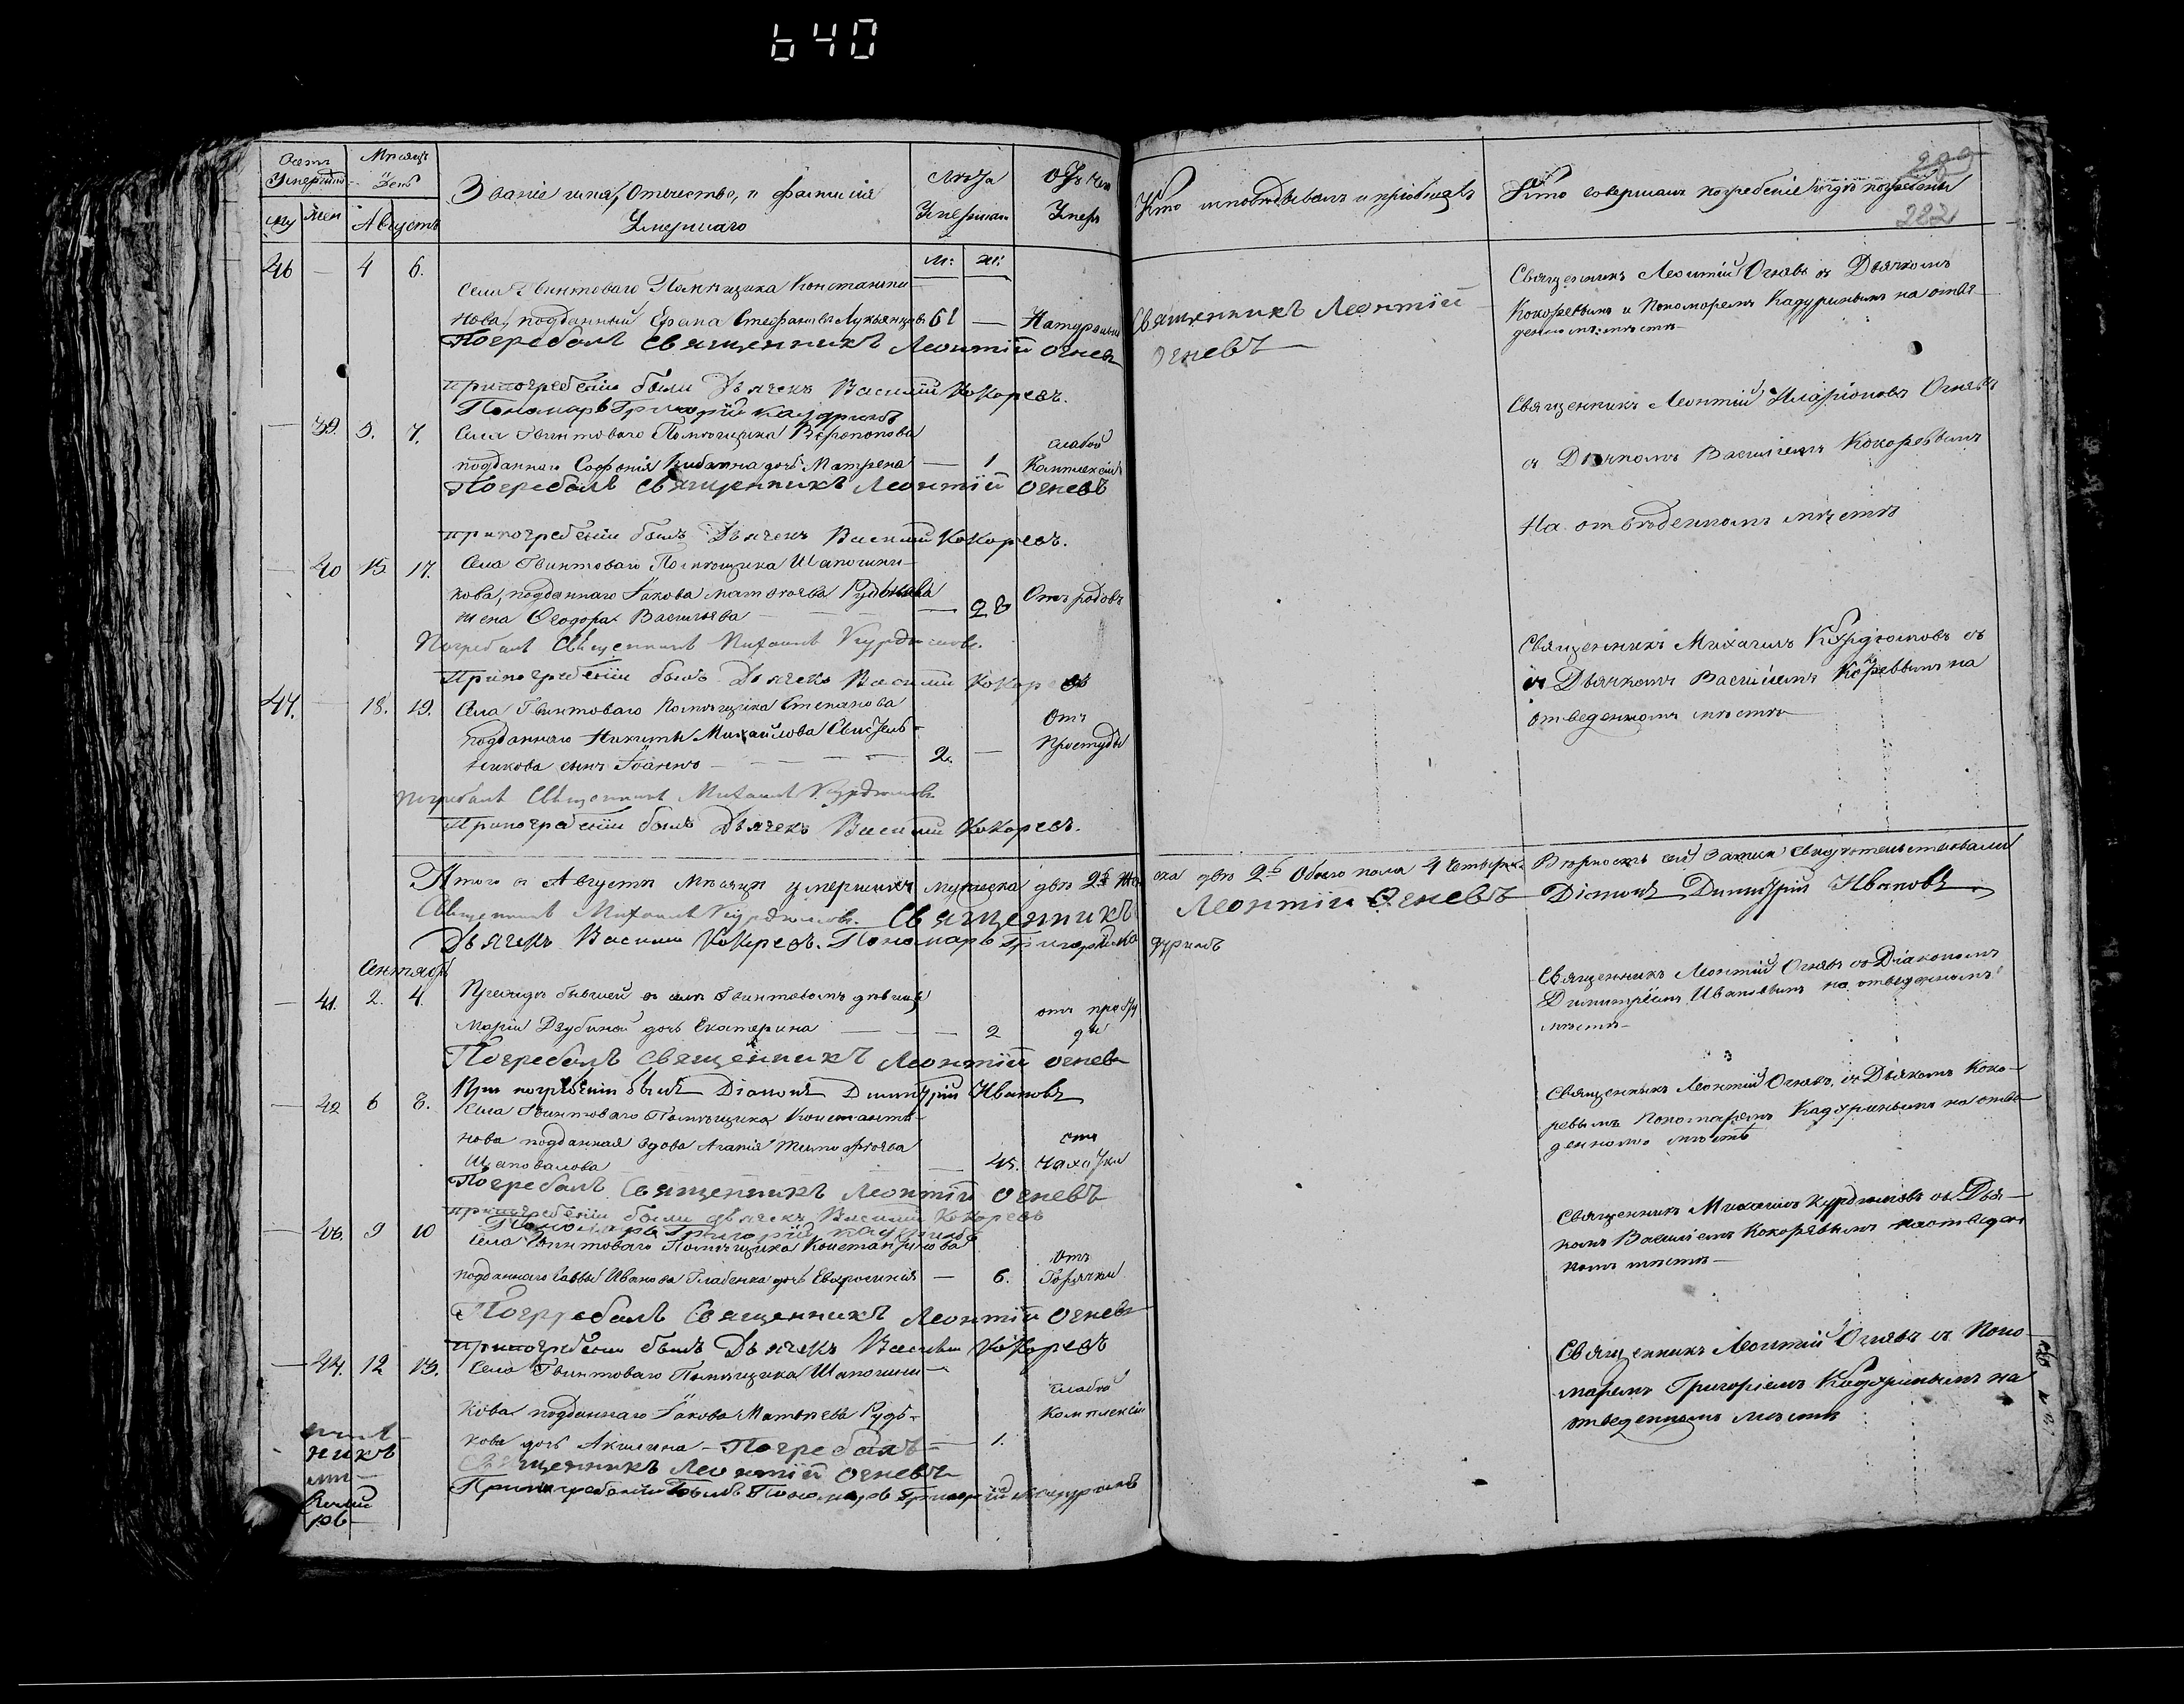 640
Счетъ Умершихъ
Мѣсяцъ День
Званіе имя, Отечество, и фамилія Умершаго
Лѣта Умершаго
Отъ чего Умеръ
Кто исповѣдывалъ и пріобщалъ
Кто совершалъ погребеніе и гдѣ погребены
282
му жен Августъ
м: ж:
46 — 4 6.
Села Гвинтоваго Помѣщика Константи-
нова, подданный Стефановъ Лукьянцовъ 61 — Натурально
Священникъ Леонтій Огневъ
Священникъ Леонтій Огнѣвъ съ Дьячкомъ
Кокоревымъ и Пономаремъ Кадуринымъ на отве-
денномъ мѣстѣ
Погребалъ Священникъ Леонтій Огневъ
при погребеніи были Дьячекъ Василій Кокоревъ.
Пономарь Григорій Кадуринъ
— 39. 5. 7. Села Гвинтоваго Помѣщика
подданнаго Софонія дочь Матрена — 1 слабой Комплекціи
Священникъ Леонтій Иларіоновъ Огнѣвъ
съ Дьячкомъ Василіемъ Кокоревымъ
На отвѣденномъ мѣстѣ
Погребалъ Священникъ Леонтій Огневъ
при погребеніи былъ Дьячекъ Василий Кокоревъ.
— 40 15. 17. Села Гвинтоваго Помѣщика Шапошни-
кова, подданнаго Іакова Матвѣева
жена Ѳеодора Васильева — 28 Отъ родовъ
Священникъ Михаилъ Курдюмовъ съ
Дьячкомъ Василіемъ Кокоревымъ на
отведенномъ мѣстѣ
Погребалъ Священникъ Михаилъ Курдюмовъ.
При погребеніи былъ Дьячекъ Василий Кокоревъ
47. — 18. 19. Села Гвинтоваго Помѣщика Степанова
подданнаго Никиты Михайлова
никова сынъ Іоаннъ — 2. — Отъ Простуды
Погребалъ Священникъ Михаилъ Курдюмовъ
При погребеніи былъ Дьячекъ Василий Кокоревъ.
Итого въ Августѣ Мѣсяцѣ умершихъ мужеска два 2. женска двѣ 2. Обоего пола 4 четыре. Вѣрность сей записи свидѣтельствовали
Священникъ Михаилъ Курдюмовъ. Священникъ Леонтій Огневъ Діаконъ Димитрій Ивановъ
Дьячекъ Василий Кокоревъ. Пономарь Григорій Кадуринъ
Сентябрь
— 41. 2. 4. бывшей въ селѣ Гвинтовомъ дѣвицы
Маріи Дзубиной дочь Екатерина — 2 отъ простуды
Священникъ Леонтій Огнѣвъ съ Діакономъ
Димитріемъ Ивановымъ на отведенномъ
мѣстѣ
Погребалъ Священникъ Леонтій Огневъ
При погребеніи былъ Діаконъ Димитрій Ивановъ
— 42 6 8. Села Гвинтоваго Помѣщика Константи-
нова подданная вдова Агафія Тимофѣева
Шаповалова — 45. отъ Чахотки
Священникъ Леонтій Огнѣвъ, съ Дьячкомъ Коко-
ревымъ Пономаремъ Кадуринымъ на отве-
денномъ мѣстѣ
Погребалъ Священникъ Леонтій Огневъ
при погребеніи были дьячекъ Василий Кокоревъ
Пономарь Григорій Кадуринъ
9 10 Села Гвинтоваго Помѣщика Константинова
подданнаго Саввы Иванова дочь Евфросинія — 6. Отъ Горячки
Священникъ Михаилъ Курдюмовъ съ Дья-
комъ Василіемъ Кокоревымъ на отведен
номъ мѣстѣ
Погребалъ Священникъ Леонтій Огневъ
при погребеніи былъ Дьячекъ Василий Кокоревъ
— 44. 12 13. Села Гвинтоваго Помѣщика Шапошни-
кова подданнаго Іакова Матвѣева Рудь-
кова дочь Акилина — 1. слабой Комплекціи
Священникъ Леонтій Огнѣвъ съ Поно-
маремъ Григоріемъ Кадуринымъ на
отведенномъ мѣстѣ
Погребалъ
Священникъ Леонтій Огневъ
При погребеніи былъ Пономарь Григорій Кадуринъ
никъ